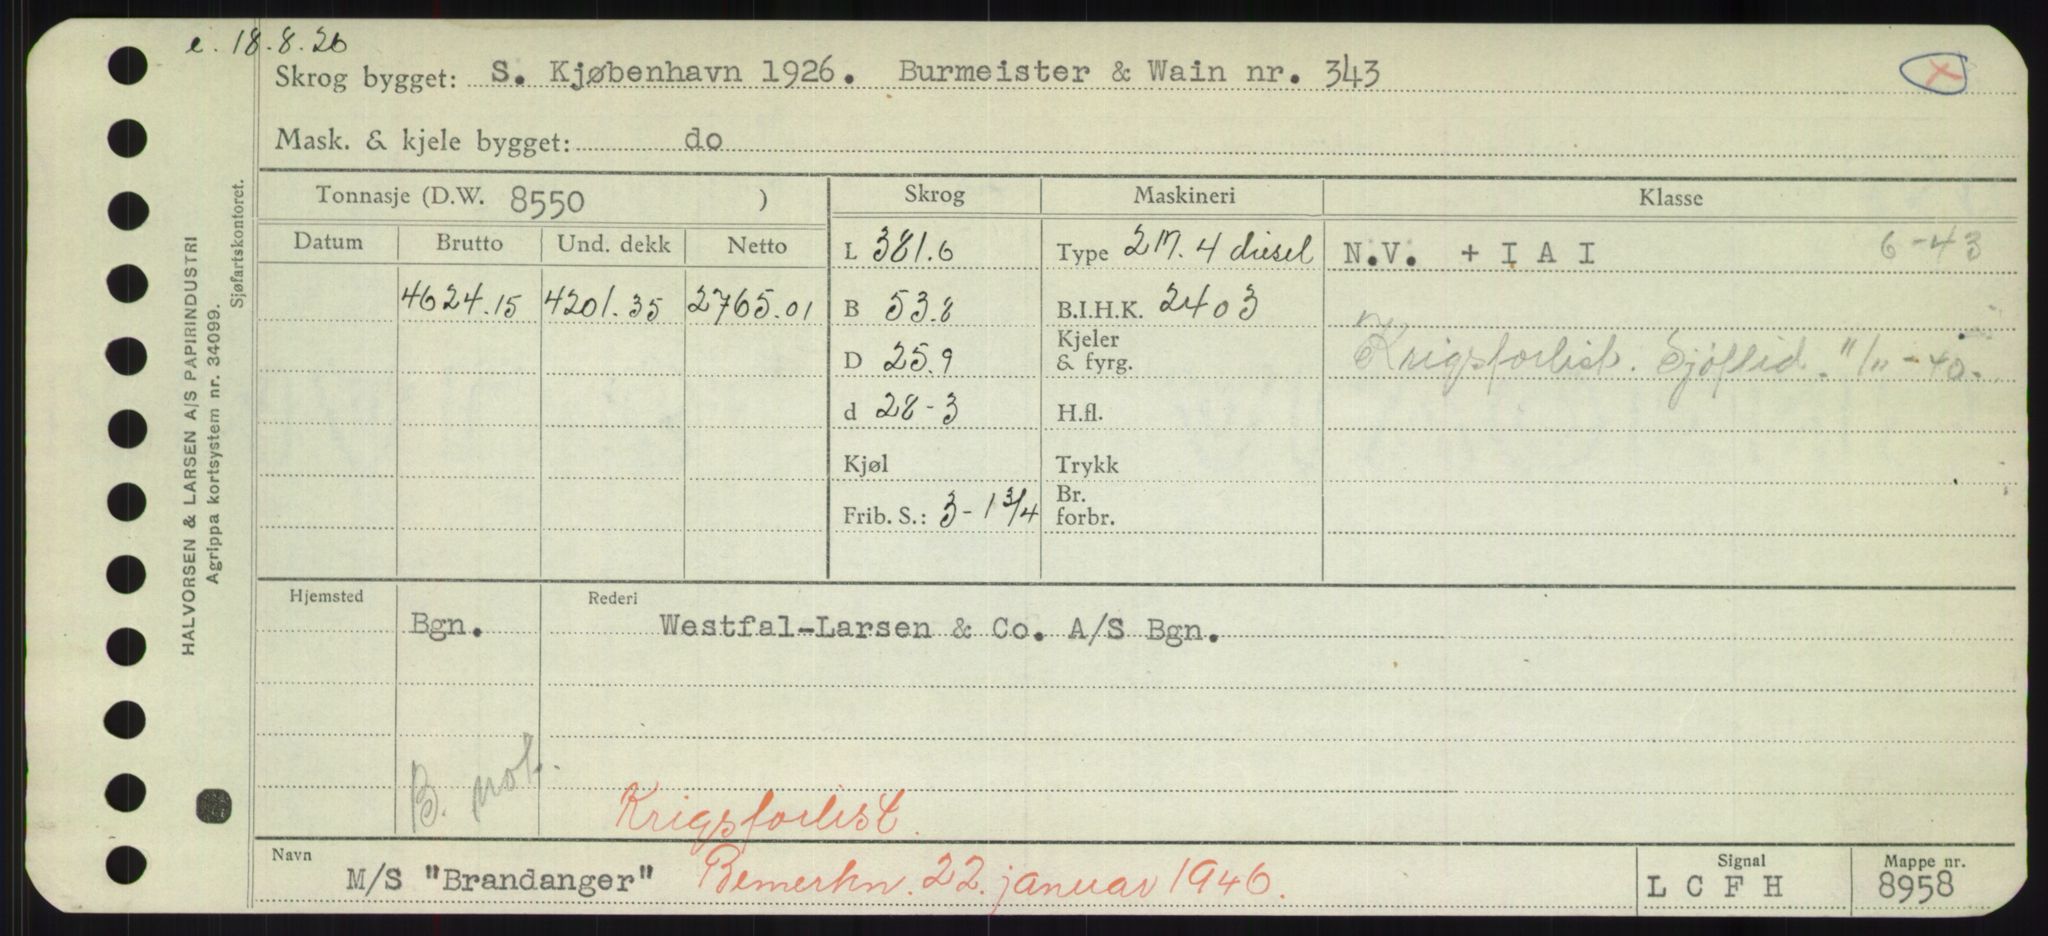 e. 18.8.26
Skrog bygget: S. Kjøbenhavn 1926. Burmeister & Wain nr. 343
Mask. & kjele bygget: do
Tonnasje (D.W. 8550 )
Skrog
Maskineri
Klasse
Datum Brutto Und. dekk Netto
4624.15 4201.35 2765.01
L 381.6
B 53.8
D 25.9
d 28-3
Kjøl
Frib. S.: 3-1 3/4
Type 2 M. 4 diesel
B.I.H.K. 2403
Kjeler
& fyrg.
H.fl.
Trykk
Br.
forbr.
N.V. + I A I 6-43
Krigsforlist. Sjøftid. "/11-40.
Hjemsted
Rederi
Bgn. Westfal-Larsen & Co. A/S Bgn.
B. not.
Krigsforlist.
Navn
M/S "Brandanger" Bemerkn. 22. januar 1946.
Signal
L C F H
Mappe nr.
8958
HALVORSEN & LARSEN A/S PAPIRINDUSTRI
Agrippa kortsystem nr. 34099.
Sjøfartskontoret.